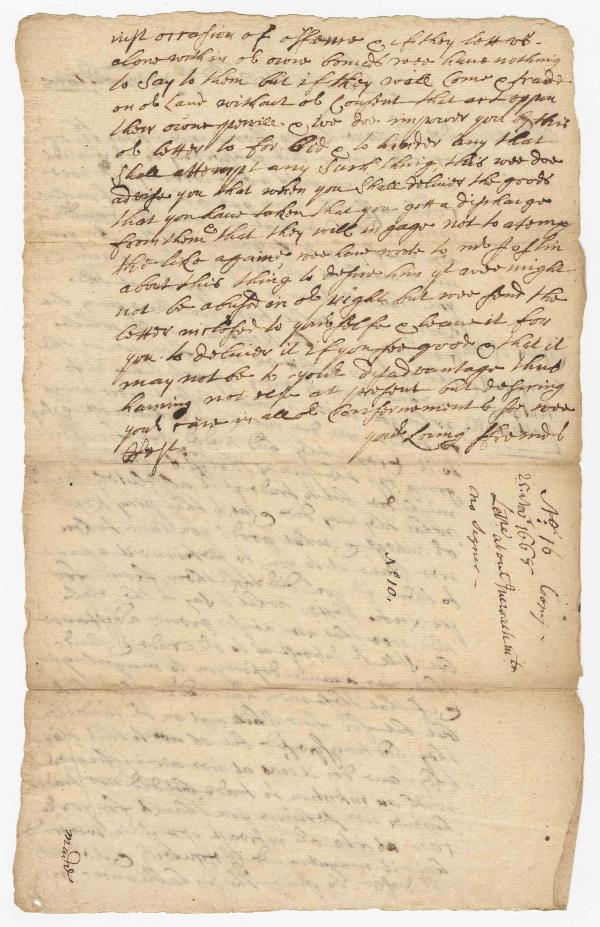 iust occasion of offence & if they lett us
alone within or owne bounds wee have nothing
to Say to them but if they will Come & trade
on or Land without or Consent that act uppon
their owne perrill & wee doe impower you by this
or letter to for bid & to hinder any that
Shall attempt any Such thing, this wee doe
advise you that when you Shall deliver the goods
that you have taken that you gett a discharge
from them & that they will in gage not to atemp
the like againe, wee have wrote to mr Joslin
about this thing to desire him yt wee might
not be abused in or right but wee send the
letter inclosed to yourselfe & leave it for
you to deliver it if you see good & that it
may not be to your disadvantage thus
having not else at present but desiring
your care in all or Consernements So wee
Rest. your Loving ffrends
No. 16 Copy
25 1667
Lettr about Incroachmts
no Signer
No 10.